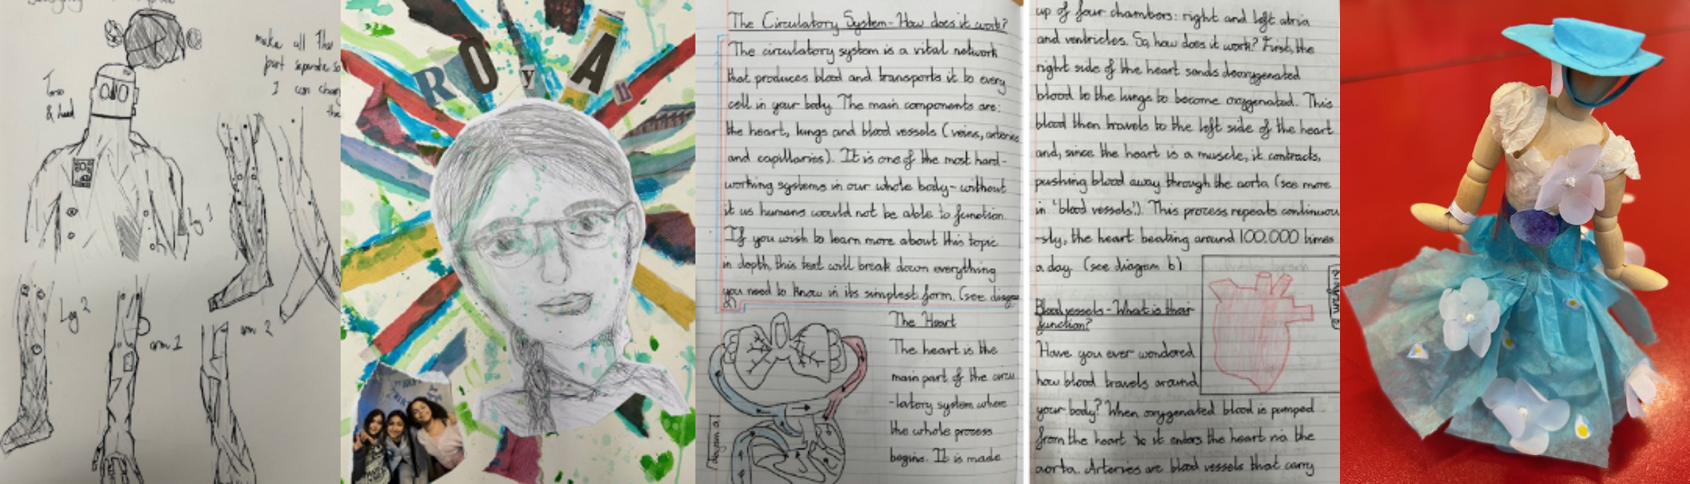 make all the
part separate so
I can chan
the
Torso
& head
Leg 1
Leg 2
arm 1
arm 2
ROyA
The Circulatory System - How does it work?
The circulatory system is a vital network
that produces blood and transports it to every
cell in your body. The main components are:
the heart, lungs and blood vessels (veins, arteries
and capillaries). It is one of the most hard-
working systems in our whole body - without
it us humans would not be able to function.
If you wish to learn more about this topic
in depth, this text will break down everything
you need to know in its simplest form. (see diagra
The Heart
The heart is the
main part of the circu
-latory system where
the whole process
begins. It is made
diagram a
up of four chambers: right and left atria
and ventricles. So, how does it work? First, the
right side of the heart sends deoxygenated
blood to the lungs to become oxygenated. This
blood then travels to the left side of the heart
and, since the heart is a muscle, it contracts,
pushing blood away through the aorta (see more
in 'blood vessels'). This process repeats continuou
-sly, the heart beating around 100,000 times
a day. (see diagram b)
Blood vessels - What is their
function?
Have you ever wondered
how blood travels around
your body? When oxygenated blood is pumped
from the heart to it enters the heart via the
aorta. Arteries are blood vessels that carry